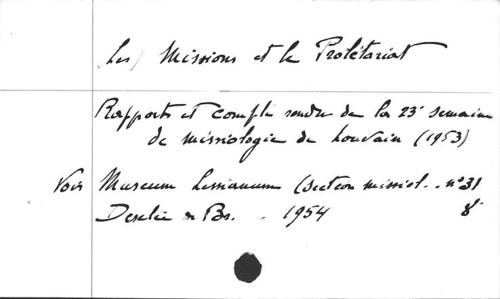 Les Missions et le Prolétariat
Rapports et compte rendu de la 23e semaine
de missiologie de Louvain (1953)
Voir Museum Lessianum (section missiol. . n°3)
Desclée & Br. . 1954 8°